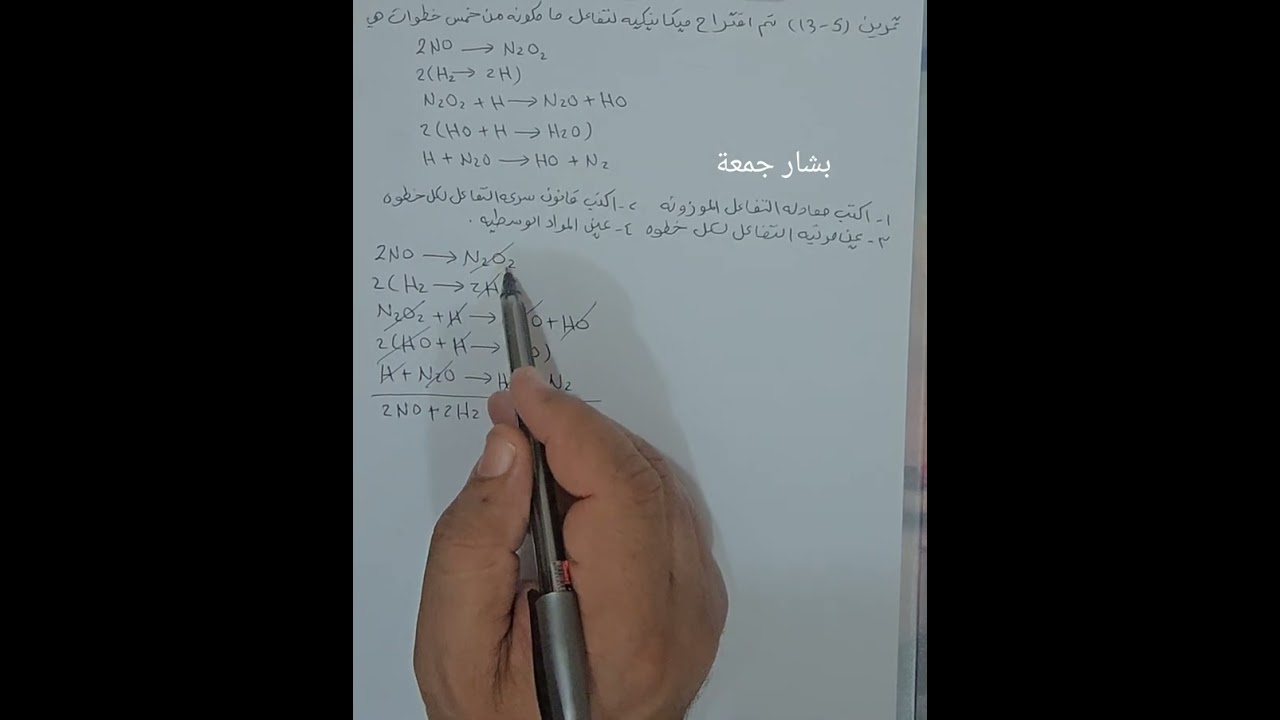 تمرين (5-13) تم اقتراح ميكانيكيه لتفاعل ما مكونه من خمس خطوات هي
2NO → N2O2
2(H2 → 2H)
N2O2 + H → N2O + HO
2(HO + H → H2O)
H + N2O → HO + N2
بشار جمعة
1- اكتب معادله التفاعل الموزونه 2- اكتب قانون سرعه التفاعل لكل خطوه
3- عين مرتبه التفاعل لكل خطوه 4- عين المواد الوسطيه .
2NO → N2O2
2(H2 → 2H
N2O2 + H → O + HO
2(HO + H → O)
H + N2O → H N2
2NO + 2H2